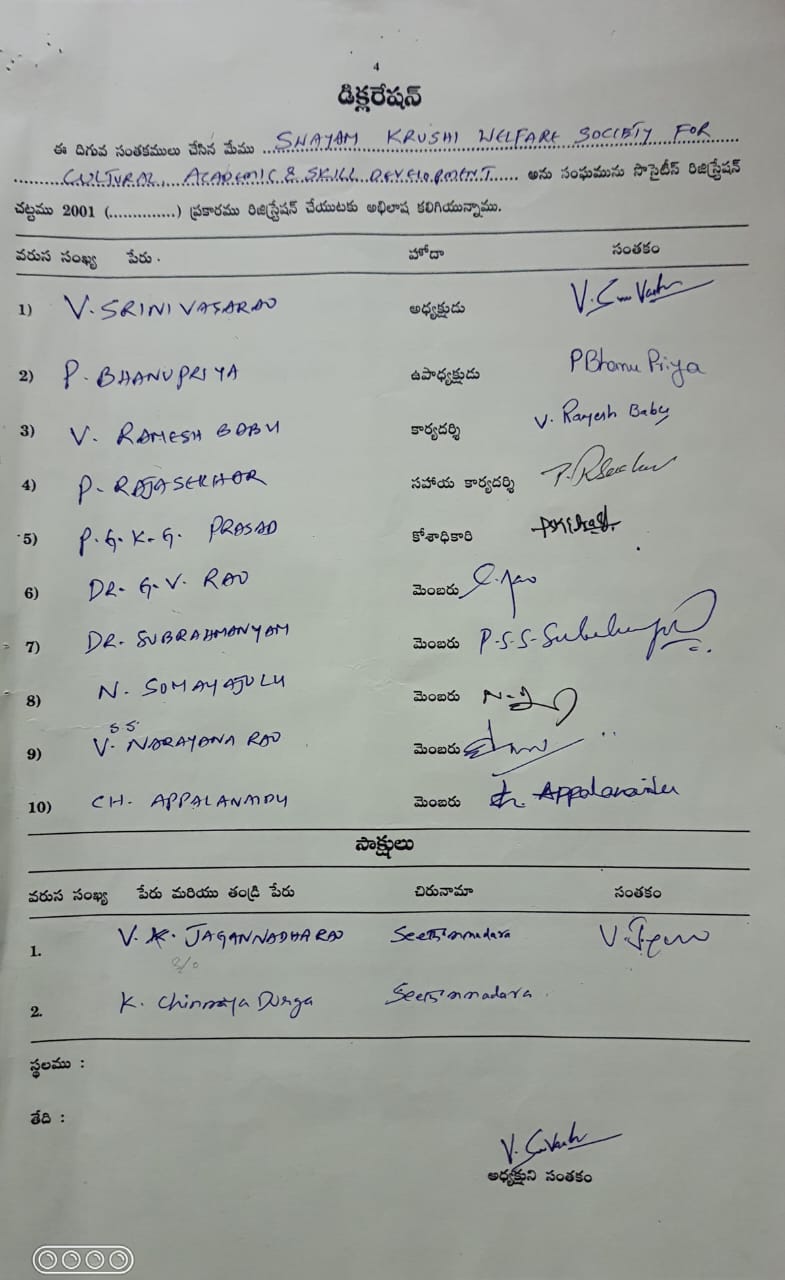 4
డిక్లరేషన్
ఈ దిగువ సంతకములు చేసిన మేము ... SWAYAM KRUSHI WELFARE SOCIETY FOR
CULTURAL, ACADEMIC & SKILL DEVELOPMENT ..... అను సంఘమును సొసైటీస్ రిజిస్ట్రేషన్
చట్టము 2001 (..............) ప్రకారము రిజిస్ట్రేషన్ చేయుటకు అభిలాష కలిగియున్నాము.
వరుస సంఖ్య పేరు . హోదా సంతకం
1) V. SRINIVASARAO అధ్యక్షుడు
2) P. BHANUPRIYA ఉపాధ్యక్షుడు P Bhanu Priya
3) V. RAMESH BABU కార్యదర్శి V. Ramesh Babu
4) P. RAJASEKHAR సహాయ కార్యదర్శి
5) P. G. K. G. PRASAD కోశాధికారి
6) DR. G. V. RAO మెంబరు
7) DR. SUBRAHMANYAM మెంబరు
8) N. SOMAYAJULU మెంబరు
9) V. SS NARAYANA RAO మెంబరు
10) CH. APPALANAIDU మెంబరు Ch. Appalanaidu
సాక్షులు
వరుస సంఖ్య పేరు మరియు తండ్రి పేరు చిరునామా సంతకం
1. V. K. JAGANNADHA RAO Seethammadara
S/o
2. K. Chinmaya Durga Seethammadara .
స్థలము :
తేది :
అధ్యక్షుని సంతకం